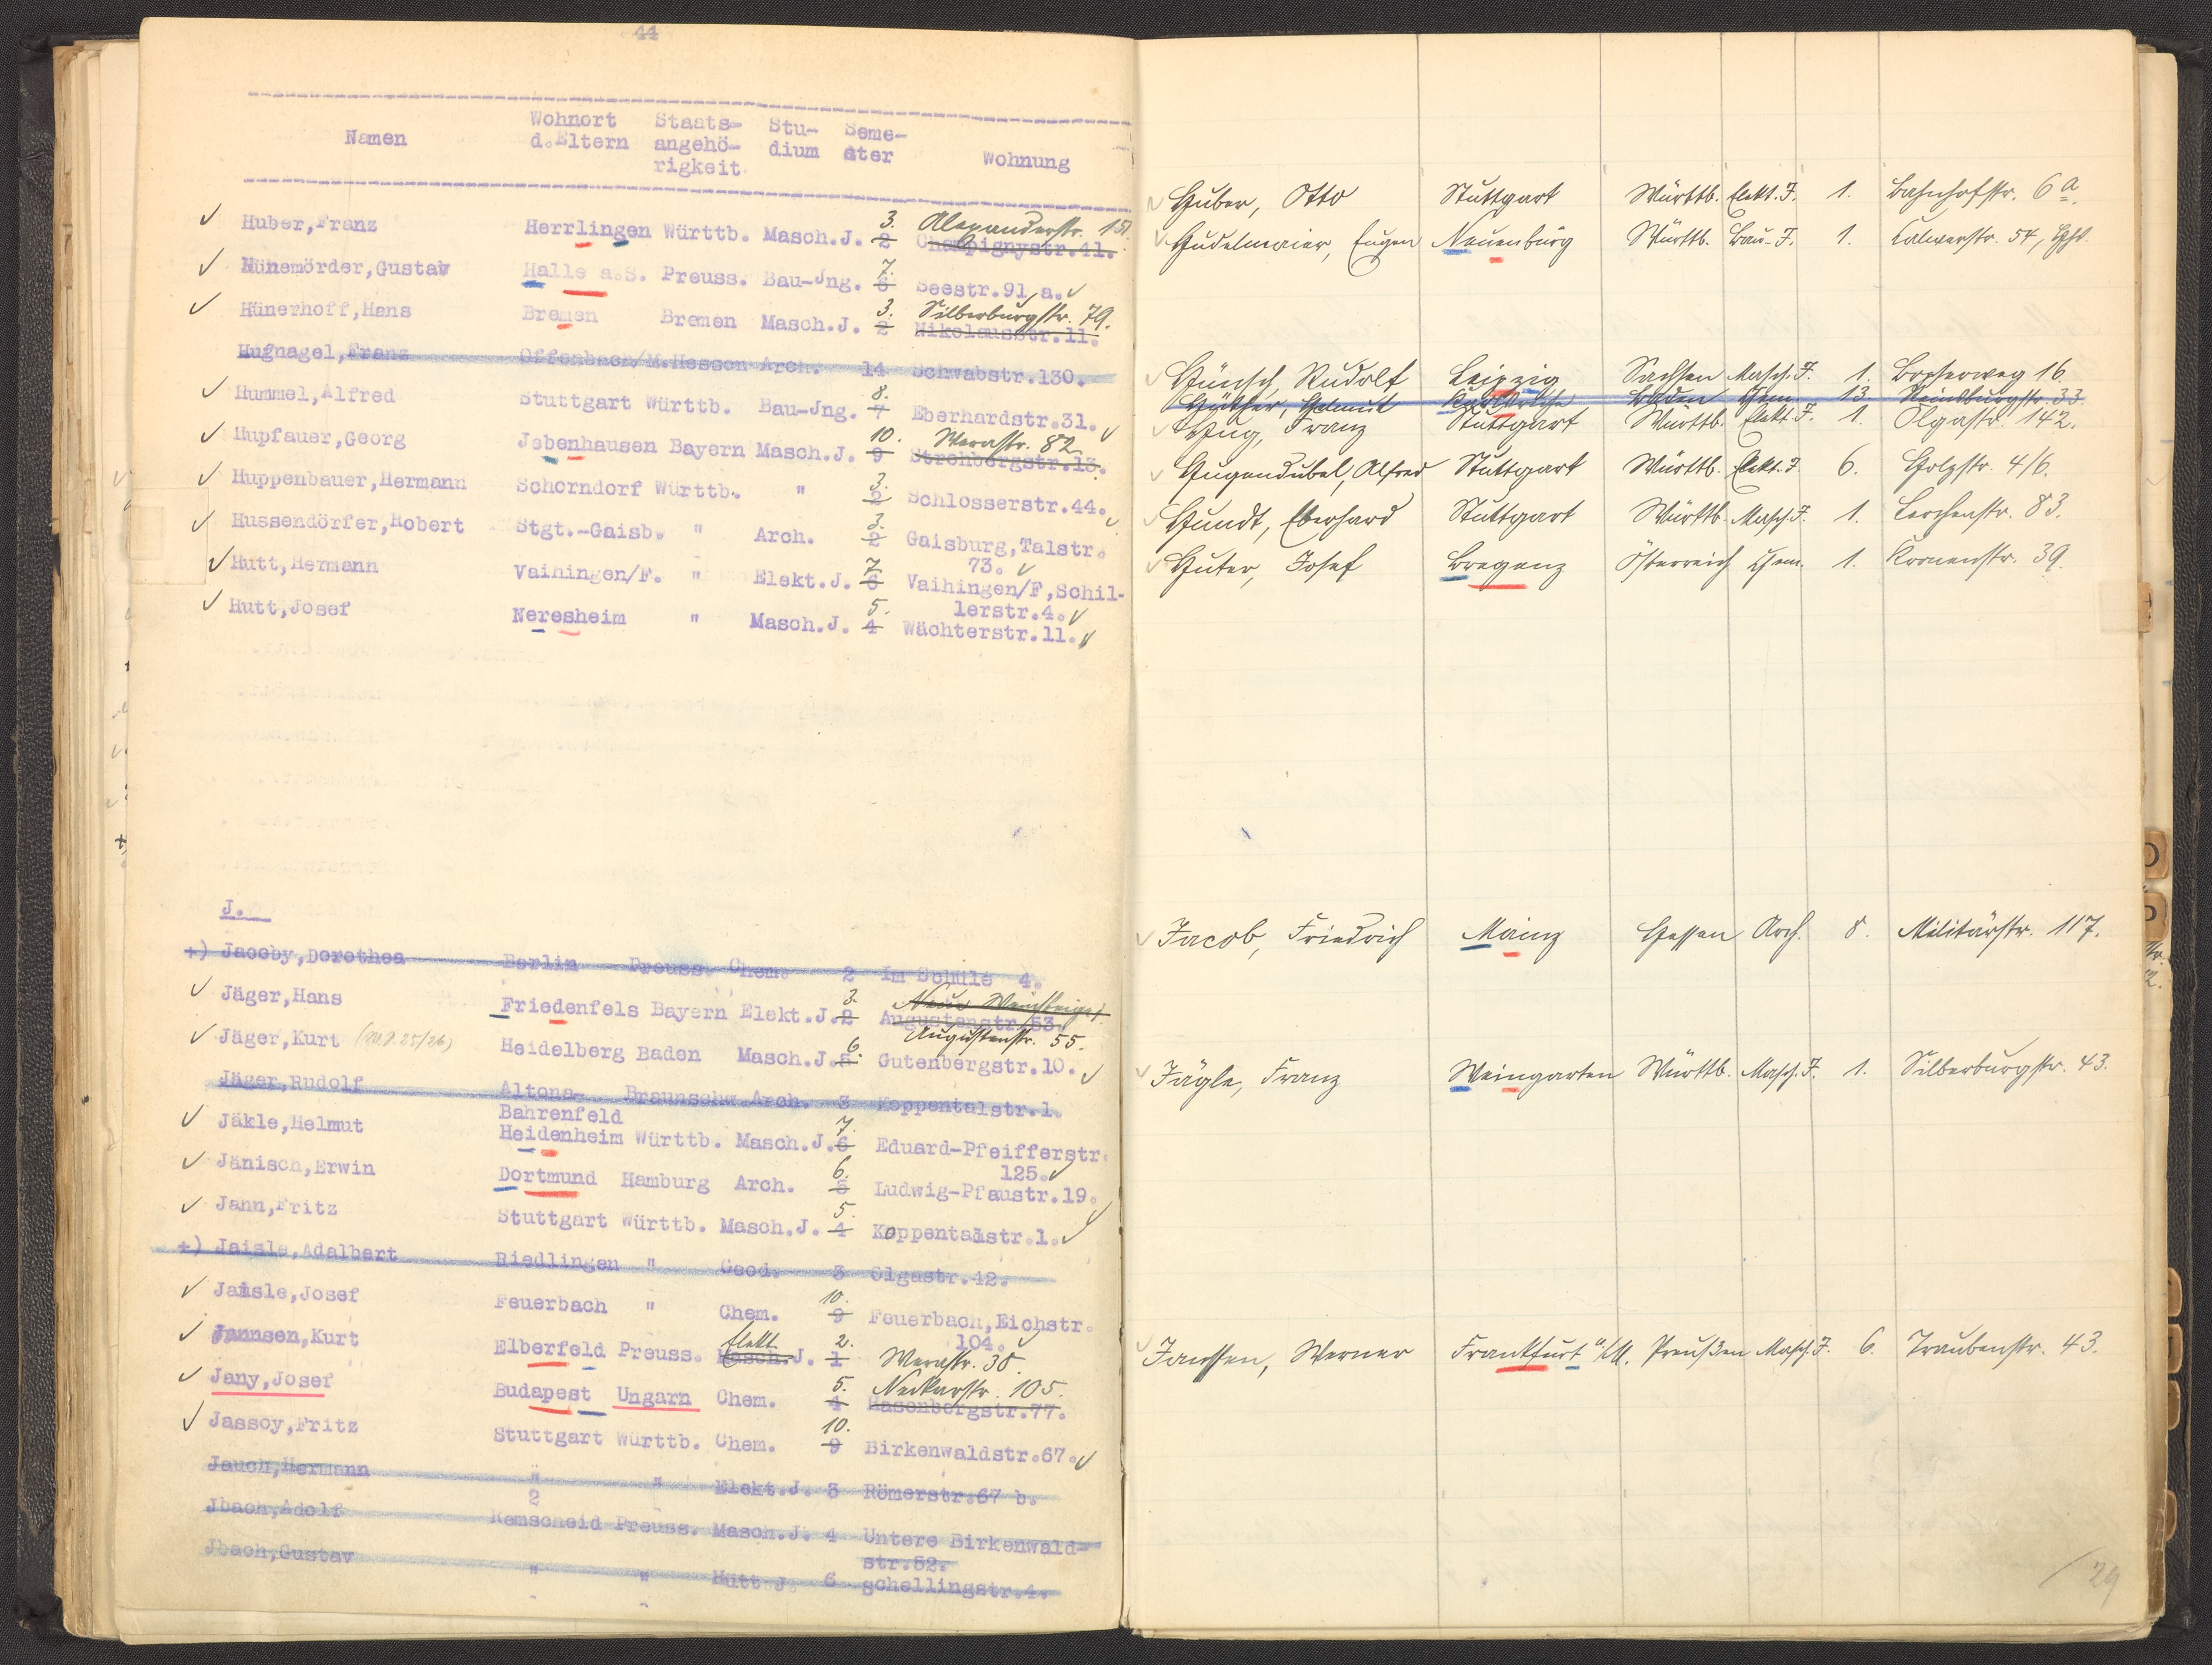 44
Namen Wohnort d.Eltern Staats-angehö-rigkeit Stu-dium Seme-ster Wohnung
Huber,Franz Herrlingen Württb. Masch.J. 2 3. Champignystr.41. Alexanderstr. 151.
Hünemörder,Gustav Halle a.S. Preuss. Bau-Jng. 6 7. Seestr.91 a.
Hünerhoff,Hans Bremen Bremen Masch.J. 2 3. Nikolausstr.11. Silberburgstr. 79.
Hufnagel,Franz Offenbach/M.Hessen Arch. 14 Schwabstr.130.
Hummel,Alfred Stuttgart Württb. Bau-Jng. 7 8. Eberhardstr.31.
Hupfauer,Georg Jebenhausen Bayern Masch.J. 9 10. Strohbergstr.13. Werastr. 82
Huppenbauer,Hermann Schorndorf Württb. " 2 3. Schlosserstr.44.
Hussendörfer,Robert Stgt.-Gaisb. " Arch. 2 3. Gaisburg,Talstr.
73.
Hutt,Hermann Vaihingen/F. " Elekt.J. 6 7. Vaihingen/F,Schil-
lerstr.4.
Hutt,Josef Neresheim " Masch.J. 4 5. Wächterstr.11.
J.
+) Jacoby,Dorothea Berlin Preuss. Chem. 2 Im Schüle 4.
Jäger,Hans Friedenfels Bayern Elekt.J. 2 3. Neue Weinsteige Augustenstr.53 Augustenstr. 55.
Jäger,Kurt (W.S.25/26) Heidelberg Baden Masch.J. 5 6. Gutenbergstr.10.
Jäger,Rudolf Altona- Braunschw.Arch. 3 Koppentalstr.1.
Bahrenfeld
Jäkle,Helmut Heidenheim Württb. Masch.J. 6 7. Eduard-Pfeifferstr.
125.
Jänisch,Erwin Dortmund Hamburg Arch. 5 6. Ludwig-Pfaustr.19.
Jahn,Fritz Stuttgart Württb. Masch.J. 4 5. Koppentalstr.1.
+) Jaisle,Adalbert Riedlingen " Geod. 3 Olgastr.42.
Jaisle,Josef Feuerbach " Chem. 9 10. Feuerbach,Eichstr.
104.
Jannsen,Kurt Elberfeld Preuss. Masch.J. Elekt. 1 2. Werastr. 38.
Jany,Josef Budapest Ungarn Chem. 4 5. Hasenbergstr.77. Neckarstr. 105.
Jassoy,Fritz Stuttgart Württb. Chem. 9 10. Birkenwaldstr.67.
Jauch,Hermann " " Elekt.J. 3 Römerstr.67 b.
2
Jbach,Adolf Remscheid Preuss. Masch.J. 4 Untere Birkenwald-
str.52.
Jbach,Gustav " " Hütt J. 6 Schellingstr.4.
Huber, Otto Stuttgart Württb. Elekt. J. 1. Bahnhofstr. 6 a.
Hudelmaier, Eugen Neuenbürg Württb. Bau-J. 1. Calwerstr. 54,
Hünsch, Rudolf Leipzig Sachsen Masch. J. 1. Bopserweg 16.
Hüther, Helmut Karlsruhe Baden Chem. 13. Reinsburgstr. 33
Hug, Franz Stuttgart Württb. Elekt. J. 1. Olgastr. 142.
Hugendubel, Alfred Stuttgart Württb. Elekt. J 6. Holzstr. 4/6.
Hundt, Eberhard Stuttgart Württb. Masch. J. 1. Lerchenstr. 83.
Huter, Josef Bregenz Österreich Chem. 1. Kronenstr. 39.
Jacob, Friedrich Mainz Hessen Arch. 8. Militärstr. 117.
Jägle, Franz Weingarten Württb. Masch. J. 1. Silberburgstr. 43.
Janssen, Werner Frankfurt a/M. Preußen Masch. J. 6. Traubenstr. 43.
29